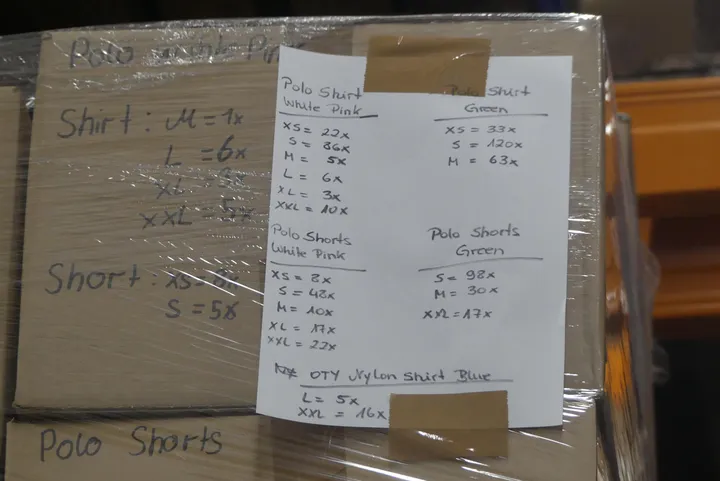 Polo white Pink
Shirt : M = 1x
L = 6x
XL = 3x
XXL = 5x
Short : XS = 8x
S = 5x
Polo Shorts
Polo Shirt
White Pink
XS = 22x
S = 86x
M = 5x
L = 6x
XL = 3x
XXL = 10x
Polo Shorts
White Pink
XS = 8x
S = 48x
M = 10x
XL = 17x
XXL = 22x
Polo Shirt
Green
XS = 33x
S = 120x
M = 63x
Polo Shorts
Green
S = 98x
M = 30x
XXL = 17x
OTY Nylon Shirt Blue
L = 5x
XXL = 16x